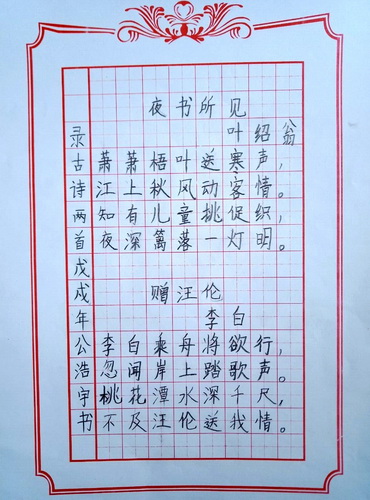 夜书所见
叶绍翁
萧萧梧叶送寒声，
江上秋风动客情。
知有儿童挑促织，
夜深篱落一灯明。
赠汪伦
李白
李白乘舟将欲行，
忽闻岸上踏歌声。
桃花潭水深千尺，
不及汪伦送我情。
录古诗两首戊戌年公浩宇书